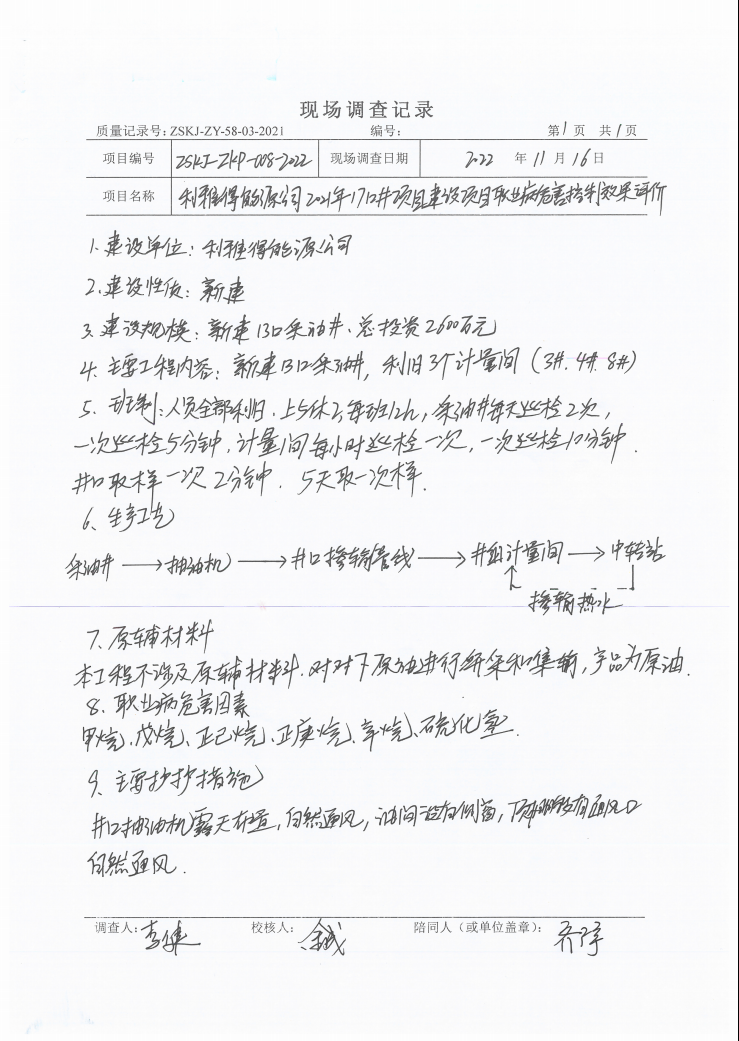 现场调查记录
质量记录号: ZSKJ-ZY-58-03-2021 编号: 第1页 共1页
项目编号 ZSKJ-ZKP-008-2022 现场调查日期 2022 年 11 月 16 日
项目名称 利雅得能源公司2021年17口井项目建设项目职业病危害控制效果评价
1. 建设单位: 利雅得能源公司
2. 建设性质: 新建
3. 建设规模: 新建13口采油井、总投资2600万元
4. 主要工程内容: 新建13口采油井, 利旧3个计量间 (3#. 4#. 8#)
5. 班制: 人员全部利旧. 上5休2, 每班12h, 采油井每天巡检2次,
一次巡检5分钟, 计量间每小时巡检一次, 一次巡检10分钟.
井口取样一次2分钟. 5天取一次样.
6. 生产工艺
采油井 → 抽油机 → 井口掺输管线 → 井组计量间 → 中转站
掺输热水
7. 原辅材料
本工程不涉及原辅材料. 对地下原油进行开采和集输, 产品为原油.
8. 职业病危害因素
甲烷、戊烷、正己烷、正庚烷、辛烷、硫化氢.
9. 主要护措施
井口抽油机露天布置, 自然通风, 计量间设有侧窗, 顶部设有通风口
自然通风.
调查人: 李健 校核人: 陪同人（或单位盖章）: